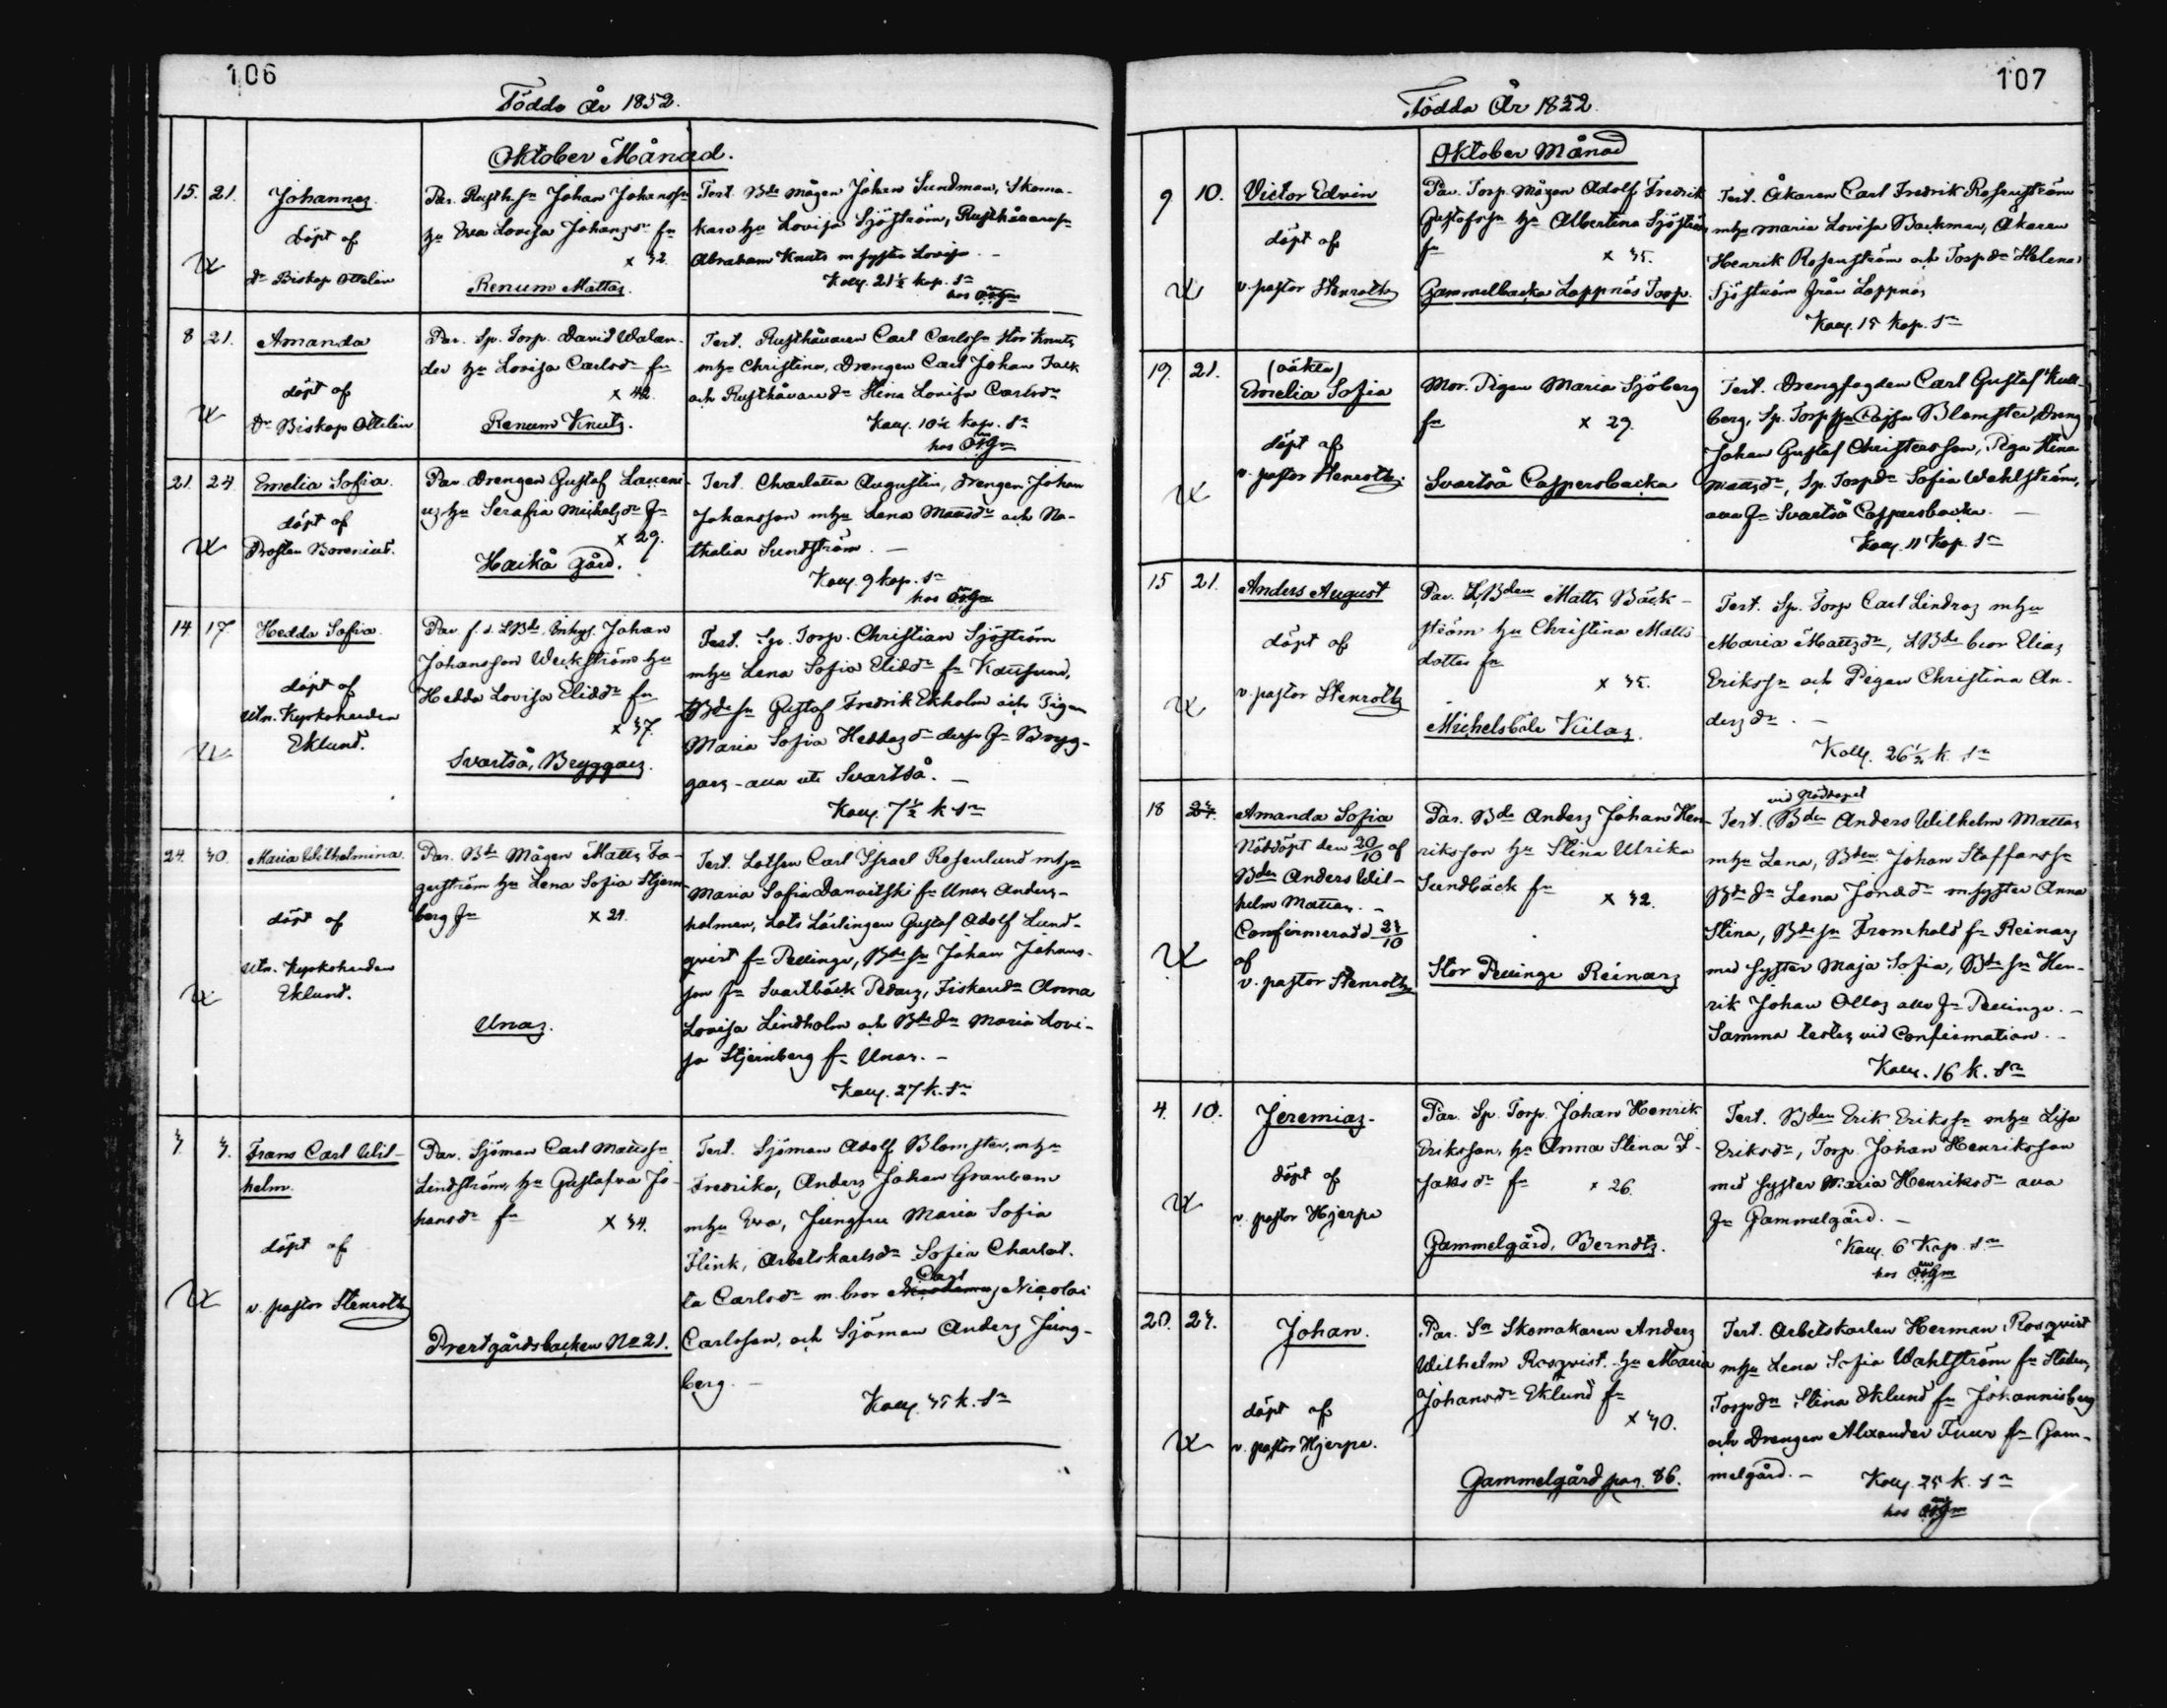 106
Födde År 1852.
Oktober Månad.
15. 21. Johannes
döpt af
Dr Biskop Ottelin
Par. Rusth. sn Johan Johanssn
hu Eva Lovisa Johansdr fn
x 32.
Renum Mattas.
Test. Bde mågen Johan Sundman, Skoma-
kare hu Lovisa Sjöström, Rusthållaresn
Abraham Knuts m syster Lovisa
Koll. 21 ½ kop. Sr
8 21. Amanda
döpt af
Dr Biskop Ottelin
Par. Sp. Torp. David Walan-
der hu Lovisa Carlsdr fn
x 42.
Renum Knuts.
Test. Rusthållaren Carl Carlssn Stor Knuts
mhu Christina, Drengen Carl Johan Falk
och Rusthållaredr Stina Lovisa Carlsdr
Koll. 10 ½ kop. Sr
21. 24. Emelia Sofia.
döpt af
Prosten Borenius.
Par. Drengen Gustaf Laurent-
us hu Serafia Michelsdr fn
x 29.
Haikå Gård.
Test. Charlotta Augustin, drengen Johan
Johansson mhu Lena Mattsdr och Na-
thalia Sundström. —
Koll. 9 kop. Sr
14. 17. Hedda Sofia.
döpt af
Utn. Kyrkoherden
Eklund.
Par. f. d. LBde Inhys. Johan
Johansson Weckström hu
Hedda Lovisa Eliedr fn
x 37.
Svartså, Bryggars.
Test. Sp. Torp. Christian Sjöström
mhu Lena Sofia Eliedr fn Kallsund,
Bdesn Gustaf Fredrik Ekholm och Pigan
Maria Sofia Heddasdr fn Bryg-
gars - alla uti Svartså. —
Koll. 7 ½ k Sr
24. 30. Maria Wilhelmina.
döpt af
Utn. Kyrkoherden
Eklund.
Par. Bde Mågen Matts Fa-
gerström hu Lena Sofia Stjern-
berg fn x 29.
Unas.
Test. Lotsen Carl Israel Rosenlund mhu
Maria Sofia Danvitski fn Unas Anders-
holmen, Lots Lärlingen Gustaf Adolf Lund-
qvist fn Pellinge, Bdesn Johan Johans-
son fn Svartbäck Pedars, Fiskaredr Anna
Lovisa Lindholm och Bdedn Maria Lovi-
sa Stjernberg fn Unas. —
Koll. 27 k. Sr
3. 3. Frans Carl Wil-
helm.
döpt af
v. pastor Stenroth
Par. Sjöman Carl Mattssn
Lindström, hu Gustafva Jo-
hansdr fn x 34.
Prestgårdsbacken No 21.
Test. Sjöman Adolf Blomster, mhu
Fredrika, Anders Johan Granbom
mhu Eva, Jungfru Maria Sofia
Flink, Arbetskarlsdr Sofia Charlot-
ta Carlsdr m. bror Carl Nicolai
Carlsson, och Sjöman Anders Jung-
berg. —
Koll. 35 k. Sr
107
Födda År 1852.
Oktober Månad
9 10. Victor Edvin
döpt af
v. pastor Stenroth
Par. Torp. mågen Adolf Fredrik
Gustafssn hu Albertina Sjöström
fn x 35.
Gammelbacka Loppnäs Torp.
Test. Åkaren Carl Fredrik Rosenström
mhu Maria Lovisa Backman, Åkaren
Henrik Rosenström och Torpdr Helena
Sjöström från Loppnäs
Koll. 15 kop. Sr
19. 21. (oäkta)
Emelia Sofia
döpt af
v. pastor Stenroth.
Mor. Pigan Maria Sjöberg
fn x 29.
Svartså Caspersbacka
Test. Drengfogden Carl Gustaf Kull-
berg, Sp. Torp Cajsa Blomster, Dreng
Johan Gustaf Christersson, Piga Stina
Mattsdr, Sp. Torpdr Sofia Wahlström,
alla fn Svartså Caspersbacka. —
Koll. 11 Kop. Sr
15 21. Anders August
döpt af
v. pastor Stenroth
Par. LBden Matts Bäck-
ström hu Christina Matts
dotter fn
x 35.
Michelsböle Kilas.
Test. Sp. Torp Carl Lindros mhu
Maria Mattsdr, LBde bror Elias
Erikssn och Pigan Christina An-
dersdr. —
Koll. 26 ½ k. Sr
18 24. Amanda Sofia
Nöddöpt den 20/10 af
Bden Anders Wil-
helm Mattas. —
Confirmerad d 24/10
af
v. pastor Stenroth
Par. Bde Anders Johan Hen-
riksson hu Stina Ulrika
Sundbäck fn x 32.
Stor Pellinge Reinars
vid Nöddopet
Test. Bden Anders Wilhelm Mattas
mhu Lena, Bden Johan Staffanssn
Bdedr Lena Jonædr m syster Anna
Stina, Bdesn Fromhold fn Reinars
med syster Maja Sofia, Bdesn Hen-
rik Johan Ollas alla fn Pellinge. —
Samma testes vid Confirmation. —
Koll. 16 k. Sr
4. 10. Jeremias.
döpt af
v. pastor Hjerpe
Par. Sp. Torp. Johan Henrik
Eriksson, hu Anna Stina I-
saksdr fn x 26.
Gammelgård, Berndts.
Test. Bden Erik Erikssn mhu Lisa
Eriksdr, Torp. Johan Henriksson
med syster Maria Henriksdr alla
fn Gammelgård. —
Koll. 6 Kop. Sr
20. 24. Johan.
döpt af
v. pastor Hjerpe.
Par. Sn Skomakaren Anders
Wilhelm Rosqvist. hu Maria
Johansdr Eklund fn
x 30.
Gammelgård pag. 86.
Test. Arbetskarlen Herman Rosqvist
mhu Lena Sofia Wahlström fn Staden,
Torpdn Stina Eklund fn Johannisberg
och Drengen Alexander Fuur fn Gam-
melgård. — Koll. 25 k. Sr